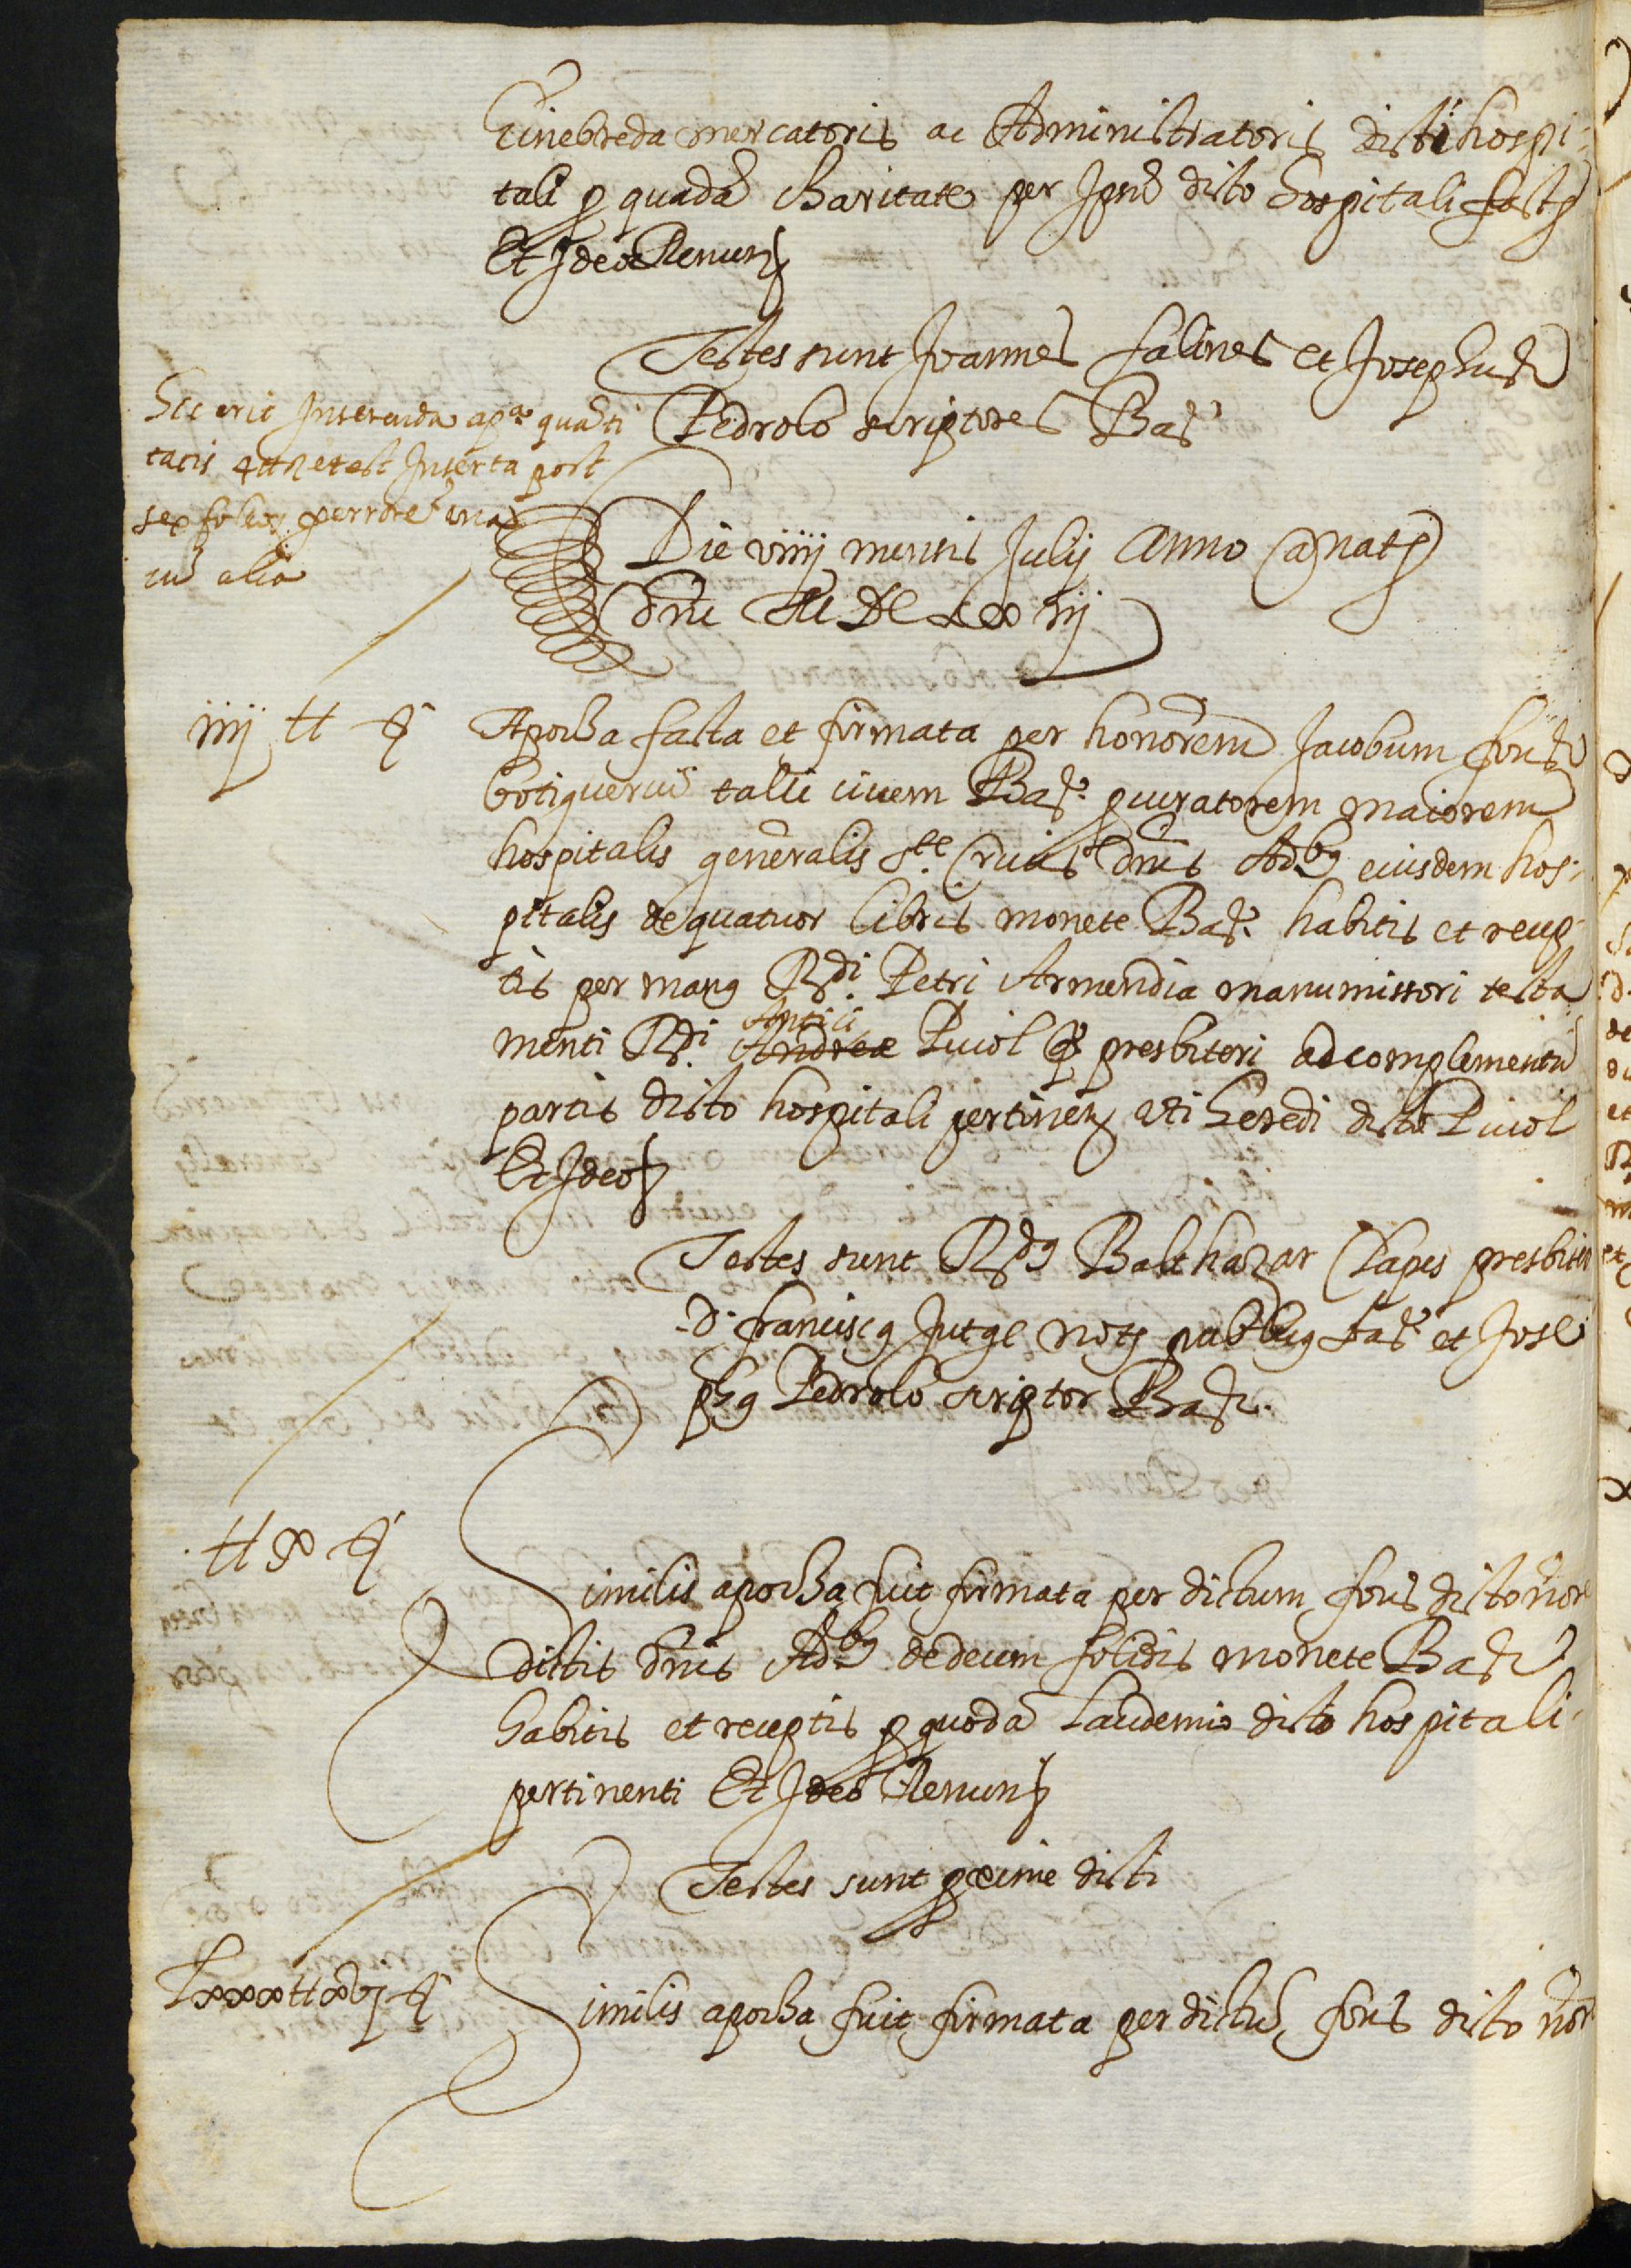 Ginebreda mercatoris ac Administratoris dicti hospi-
tali p quadã charitate per Ipsũ dicto hospitali fact
Et Ideo Renunt
Testes sunt Joannes salines et Josephus
Pedrolo scriptores Bar
Hic erit Inserenda apª quãti
tatis 4 tt et est Inserta post
sex folios per errorẽ una
cũ alia
Die viiij mensis Julij Anno a nat
Dni M DC Lxx iij
iiij tt
Apocha facta et firmata per honorem Jacobum fons
botiguerũ talli civem Bar. procuratorem maiorem
hospitalis generalis Ste. Crucis dnis Adbus eiusdem hos-
pitalis de quatuor libris monete Bar. habitis et recep-
tis per manus Rdi. Petri Armendia manumissori testa
menti Rdi. Andreæ Antici Puiol q̊ presbiteri ad complementũ
partis dicto hospitali pertinen uti heredi dicto Puiol
Et Ideo
Testes sunt Rdus Balthazar Clapes presbiter
D. franciscus Jutge not pubcus Bar et Jose
phus Pedrolo scriptor Bar.
tt x
Similis apocha fuit firmata per dictum fons dicto nõe
dictis dnis Adbus de decem solidis monete Bar
habitis et receptis p quodã Laudemio dicto hospitali
pertinenti Et Ideo Renunt
Testes sunt proxime dicti
Lxxx tt xvj
Similis apocha fuit firmata per dictũ fons dicto nõe